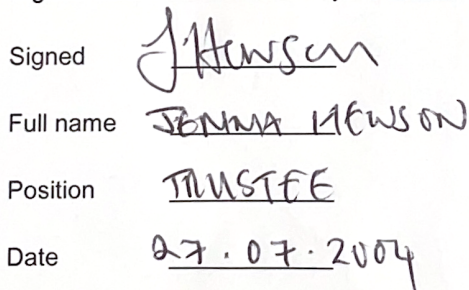 Signed J Hewson
Full name JENNA HEWSON
Position TRUSTEE
Date 27.07.2004